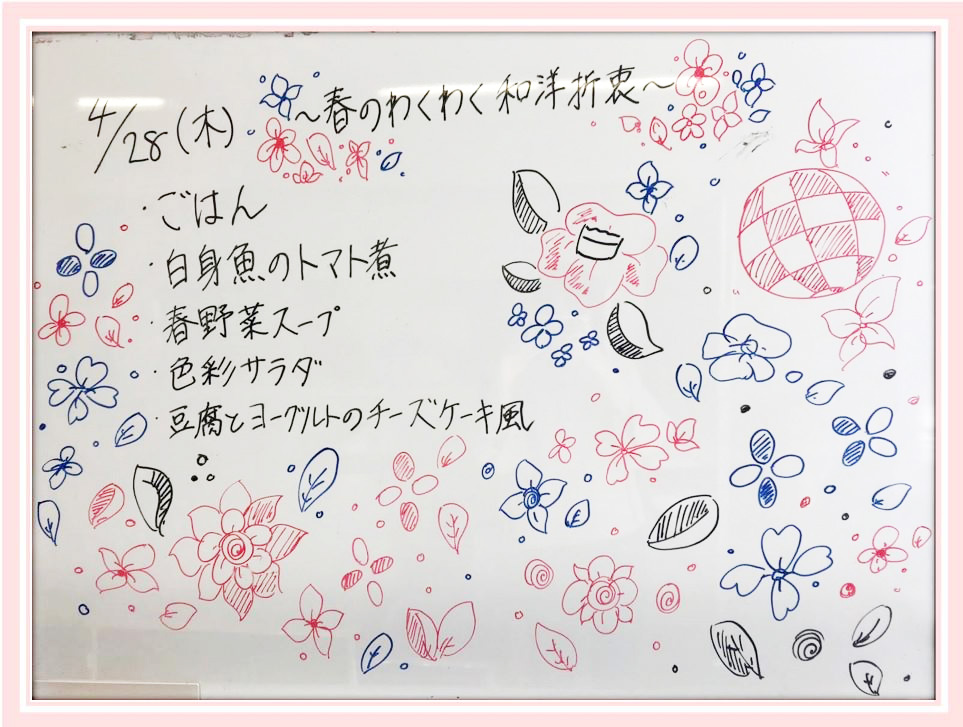 4/28(木) ~春のわくわく和洋折衷~
・ごはん
・白身魚のトマト煮
・春野菜スープ
・色彩サラダ
・豆腐とヨーグルトのチーズケーキ風